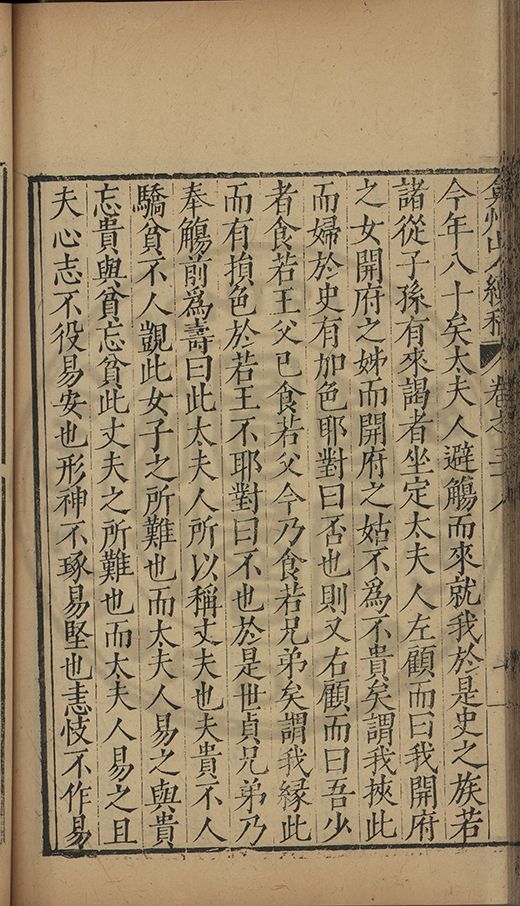 弇州山人續稿 卷之三十八
今年八十矣太夫人避觴而來就我於是史之族若
諸從子孫有來謁者坐定太夫人左顧而曰我開府
之女開府之姊而開府之姑不爲不貴矣謂我挾此
而婦於史有加色耶對曰否也則又右顧而曰吾少
者食若王父已食若父今乃食若兄弟矣謂我緣此
而有損色於若王不耶對曰不也於是世貞兄弟乃
奉觴前爲壽曰此太夫人所以稱丈夫也夫貴不人
驕貧不人覬此女子之所難也而太夫人易之與貴
忘貴與貧忘貧此丈夫之所難也而太夫人易之且
夫心志不役易安也形神不琢易堅也恚忮不作易